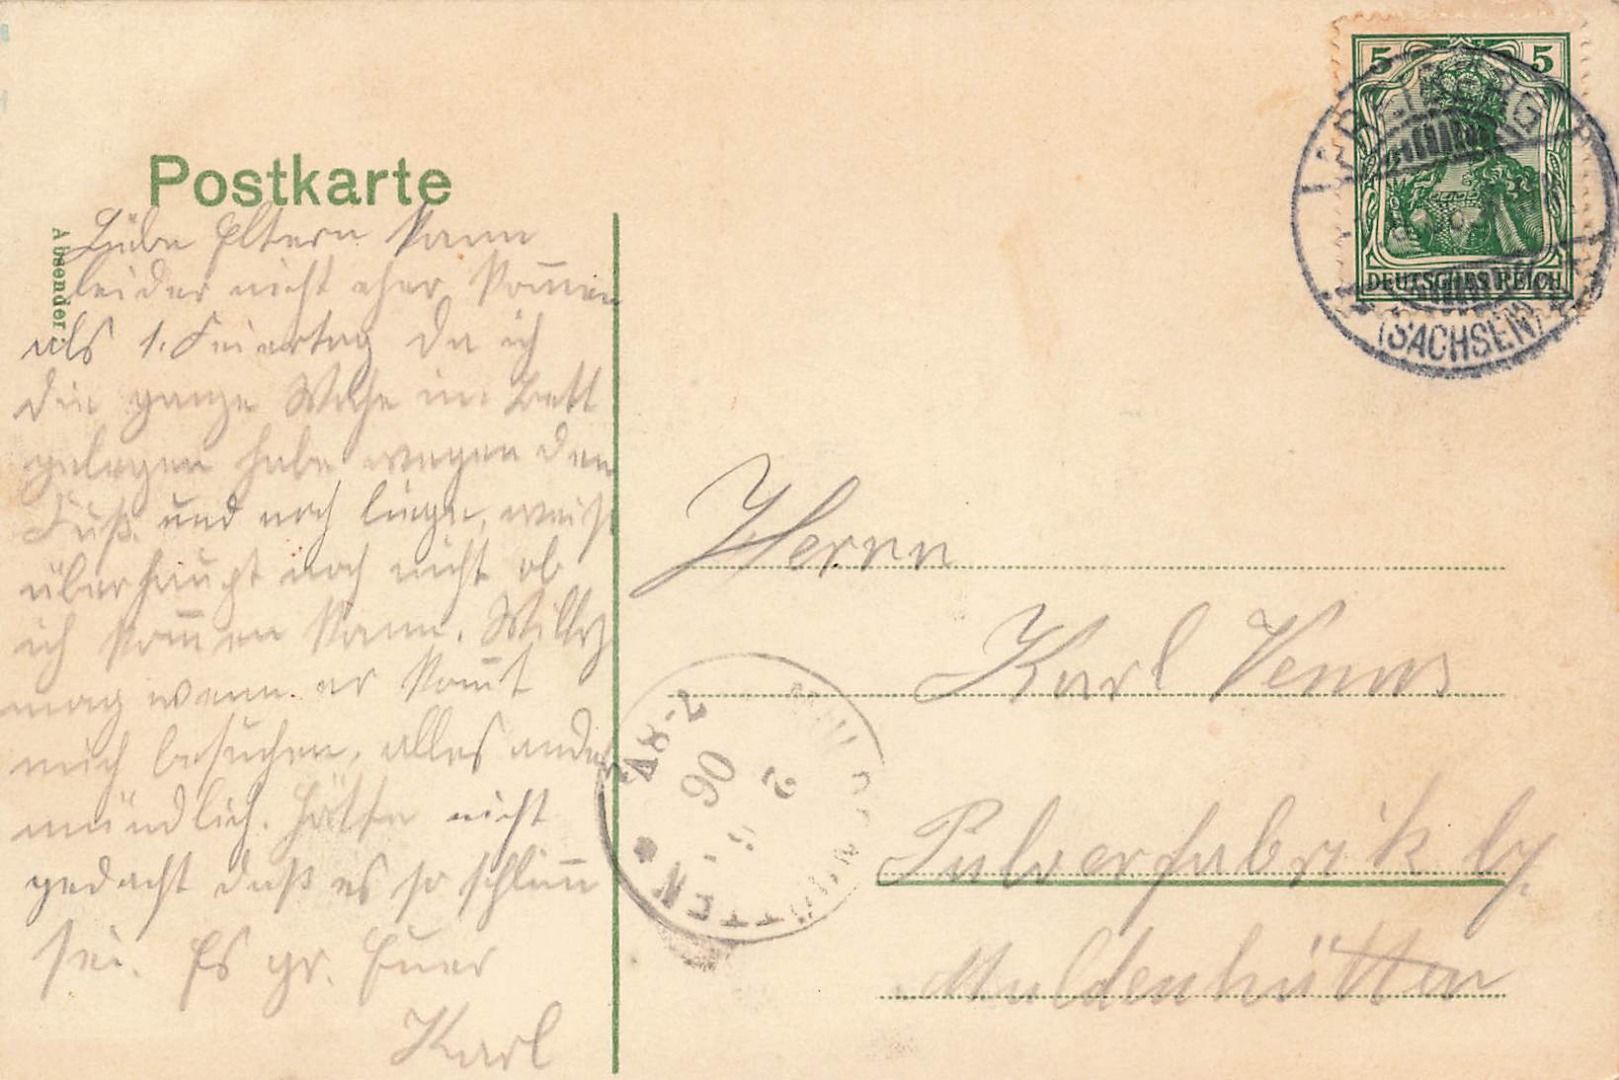 Postkarte
Absender:
Liebe Eltern kann
leider nicht eher kom̅en
als 1. Feiertag da ich
die ganze Woche im Bett
gelegen habe wegen den
Fuß. und noch liege, weiß
überhaupt noch nicht ob
ich kom̅en kann. Willy
mag wenn er kom̅t
mich besuchen, alles andere
mündlich. Hätte nicht
gedacht daß es so schlim̅
sei. Es gr. Euer
Karl
5 5
DEUTSCHES REICH
(SACHSEN)
Herrn
Karl
Pulverfabrik by
Muldenhütten
2
06
8-9V
TTEN